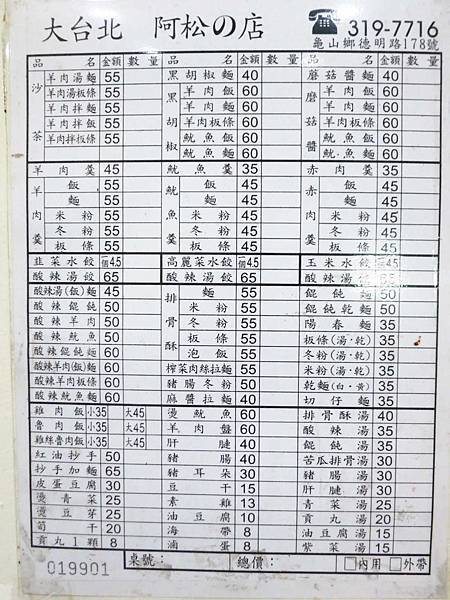 大台北 阿松の店 ☎319-7716
龜山鄉德明路178號
品名 金額 數量 品名 金額 數量 品名 金額 數量
沙茶 羊肉湯麵 55 黑胡椒麵 40 蘑菇醬麵 40
羊肉湯板條 55 黑胡椒 羊肉麵 60 蘑菇醬 羊肉麵 60
羊肉拌麵 55 羊肉飯 60 羊肉飯 60
羊肉拌飯 55 羊肉板條 60 羊肉板條 60
羊肉拌板條 55 魷魚飯 60 魷魚飯 60
魷魚麵 60 魷魚麵 60
羊肉羹 45 魷魚羹 35 赤肉羹 35
羊肉羹 飯 55 魷魚羹 飯 45 赤肉羹 飯 45
麵 55 麵 45 麵 45
米粉 55 米粉 45 米粉 45
冬粉 55 冬粉 45 冬粉 45
板條 55 板條 45 板條 45
韭菜水餃 個4.5 高麗菜水餃 個4.5 玉米水餃 個4.5
酸辣湯餃 65 酸辣湯餃 65 酸辣湯餃 65
酸辣湯(飯)麵 45 排骨酥 麵 55 餛飩麵 50
酸辣餛飩 50 米粉 55 餛飩乾麵 50
酸辣羊肉 50 冬粉 55 陽春麵 35
酸辣魷魚 50 板條 55 板條(湯·乾) 35
酸辣餛飩麵 60 泡飯 55 冬粉(湯·乾) 35
酸辣羊肉(飯)麵 60 榨菜肉絲拉麵 55 米粉(湯·乾) 35
酸辣羊肉板條 60 豬腸冬粉 50 乾麵(白·黃) 35
酸辣魷魚麵 60 麻醬拉麵 40 切仔麵 35
雞肉飯 小35 大45 燙魷魚 60 排骨酥湯 40
魯肉飯 小35 大45 羊肉盤 60 酸辣湯 35
雞絲魯肉飯 小35 大45 肝腱 40 餛飩湯 35
紅油抄手 50 豬腸 40 苦瓜排骨湯 30
抄手加麵 65 豬耳朵 30 豬腸湯 30
皮蛋豆腐 30 豆干 15 肝腱湯 30
燙青菜 25 素雞 13 青菜湯 25
燙豆芽 25 油豆腐 10 貢丸湯 20
筍干 20 海帶 8 油豆腐湯 15
貢丸1顆 8 滷蛋 8 紫菜湯 15
019901 桌號: 總價: □內用 □外帶